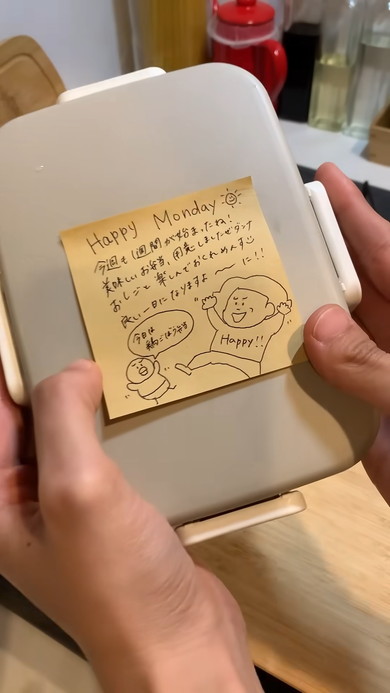 Happy Monday
今週も1週間が始まったね!
美味しいお弁当、用意しましたぜダンナ
おしごと楽しんでおくれめんす
良い一日になりますよ〜に!!
今日は
鶏ごぼう弁当
Happy!!